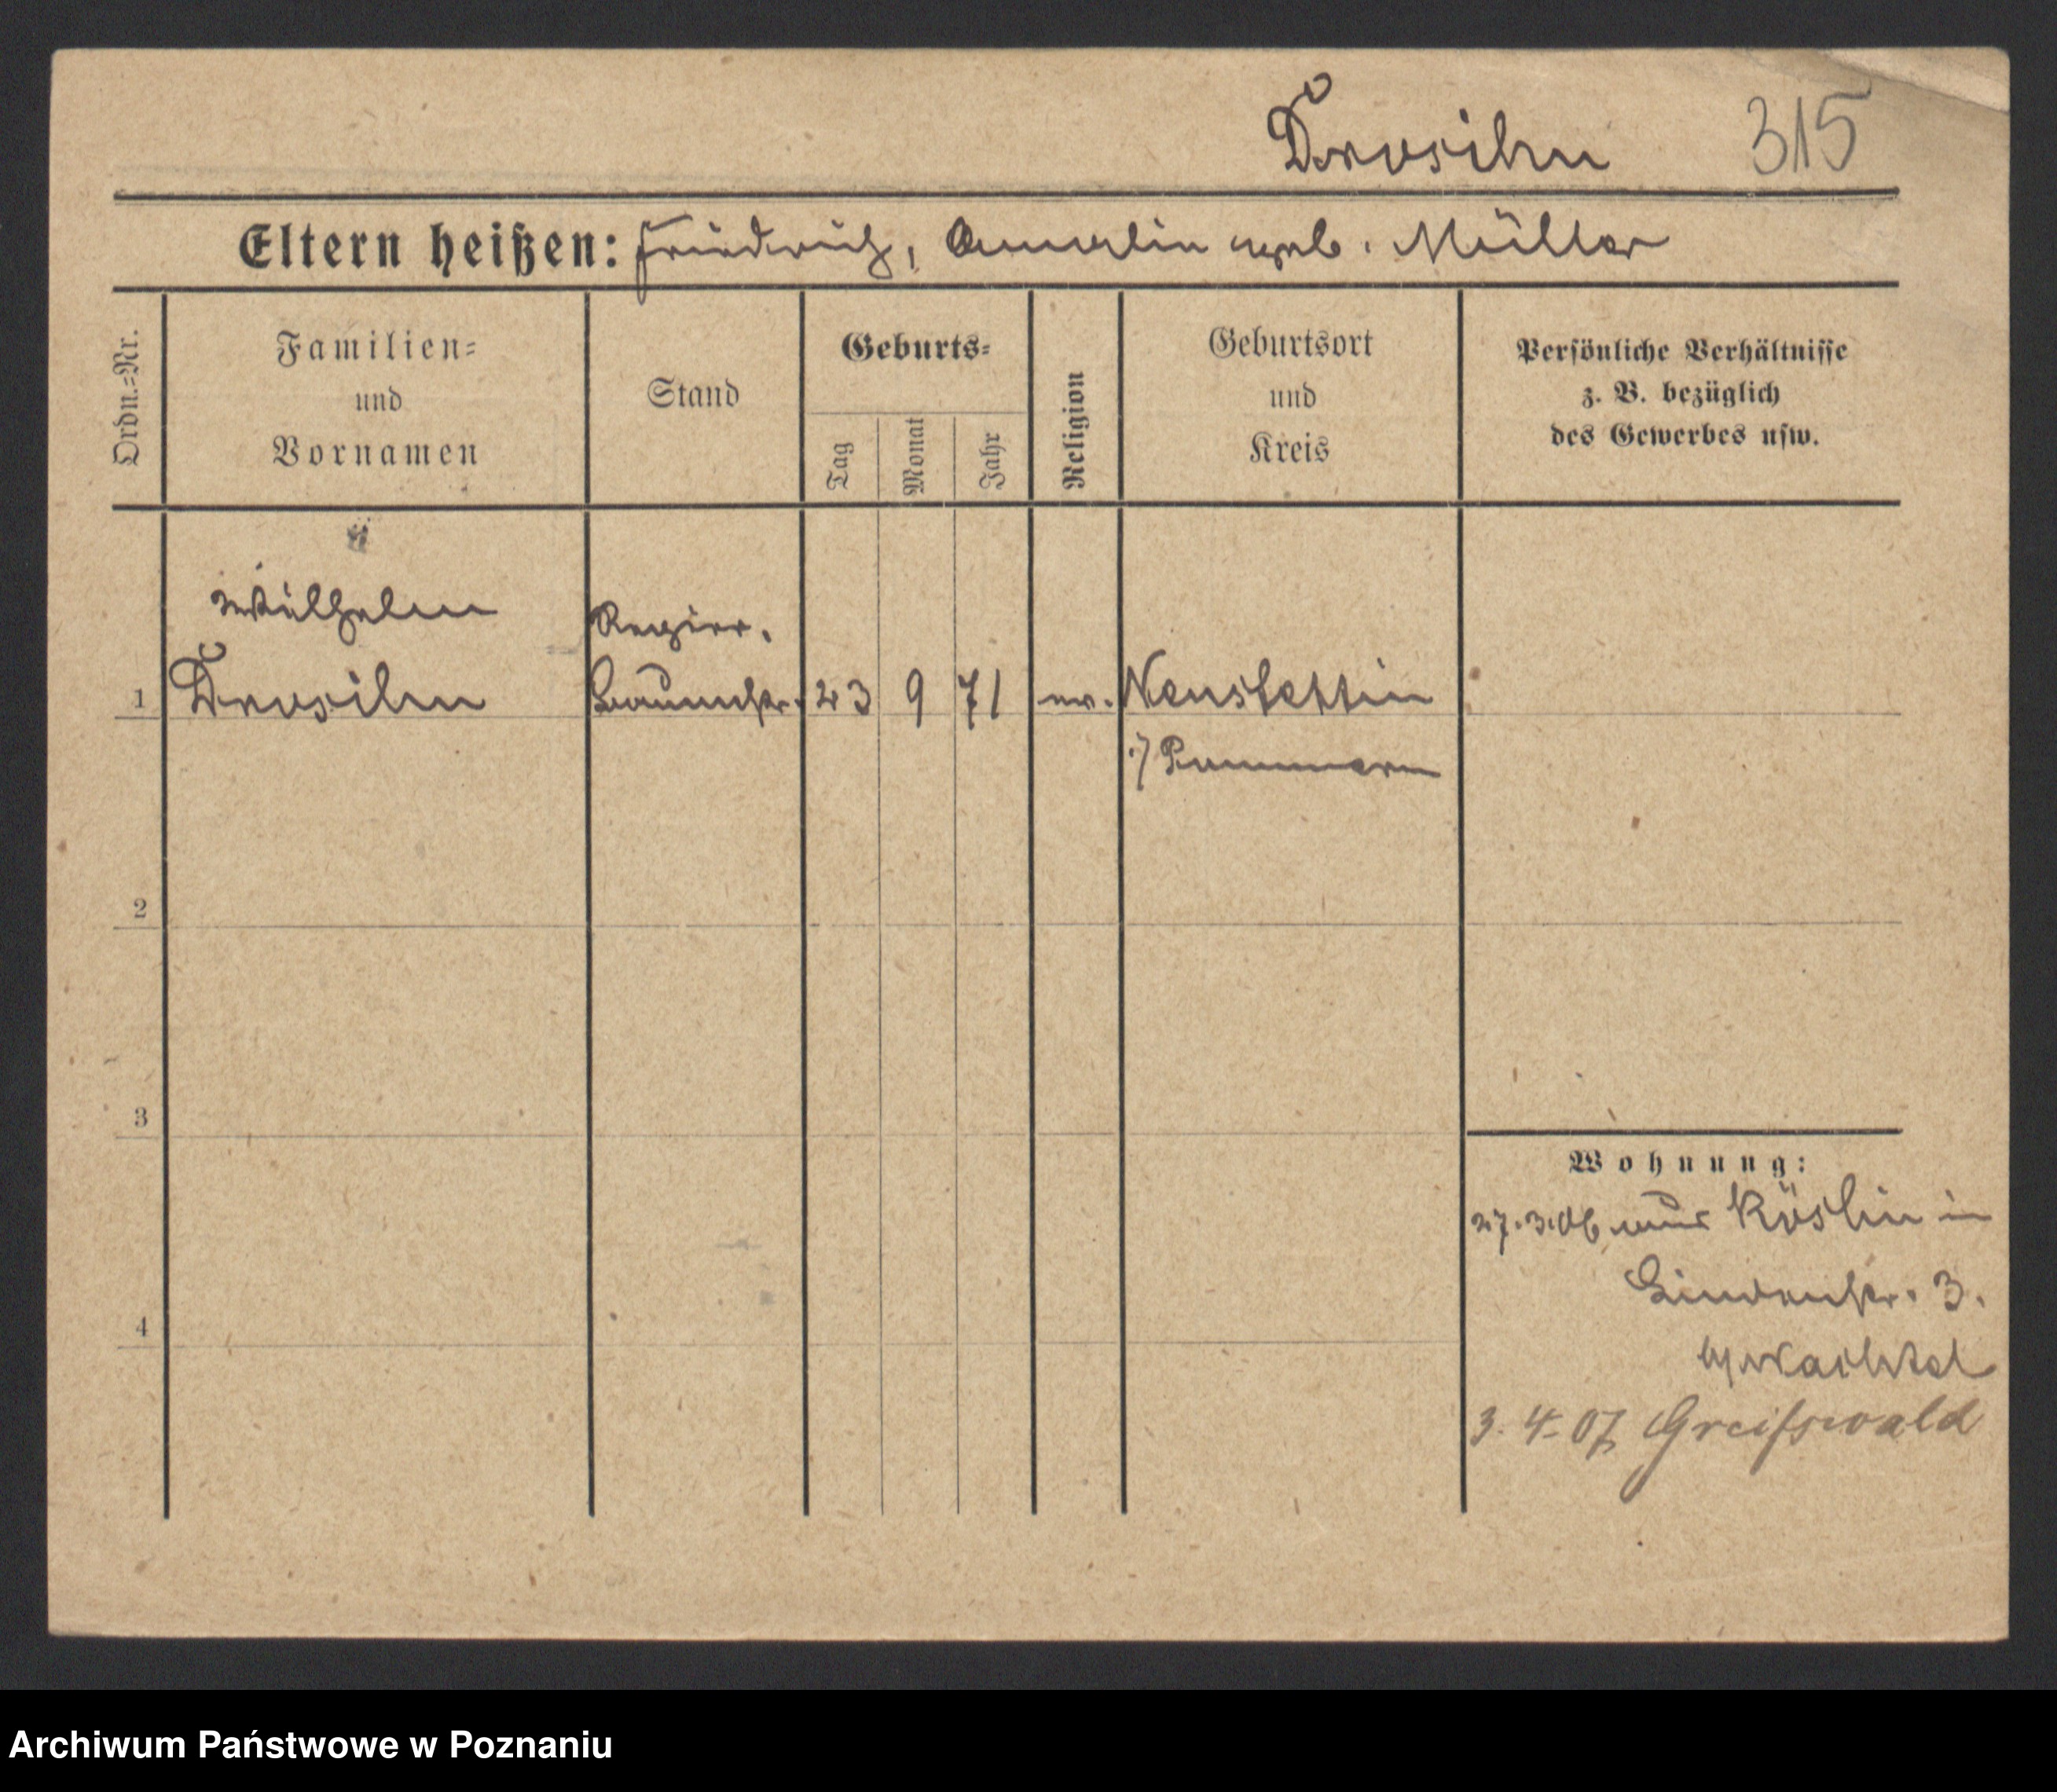 Drosihn 315
Eltern heißen: Friedrich, Amalie geb. Müller
Ordn.=Nr.
Familien=
und
Vornamen
Stand
Geburts=
Tag
Monat
Jahr
Religion
Geburtsort
und
Kreis
Persönliche Verhältnisse
z. B. bezüglich
des Gewerbes usw.
Wilhelm Regier.
1 Drosihn Baumstr. 23 9 71 ev. Neustettin
i/ Pommern
2
3
4
Wohnung:
27.3.06 aus Köslin in
Lindenstr. 3.
b/ Wachtel
3. 4. 07 Greifswald
Archiwum Państwowe w Poznaniu